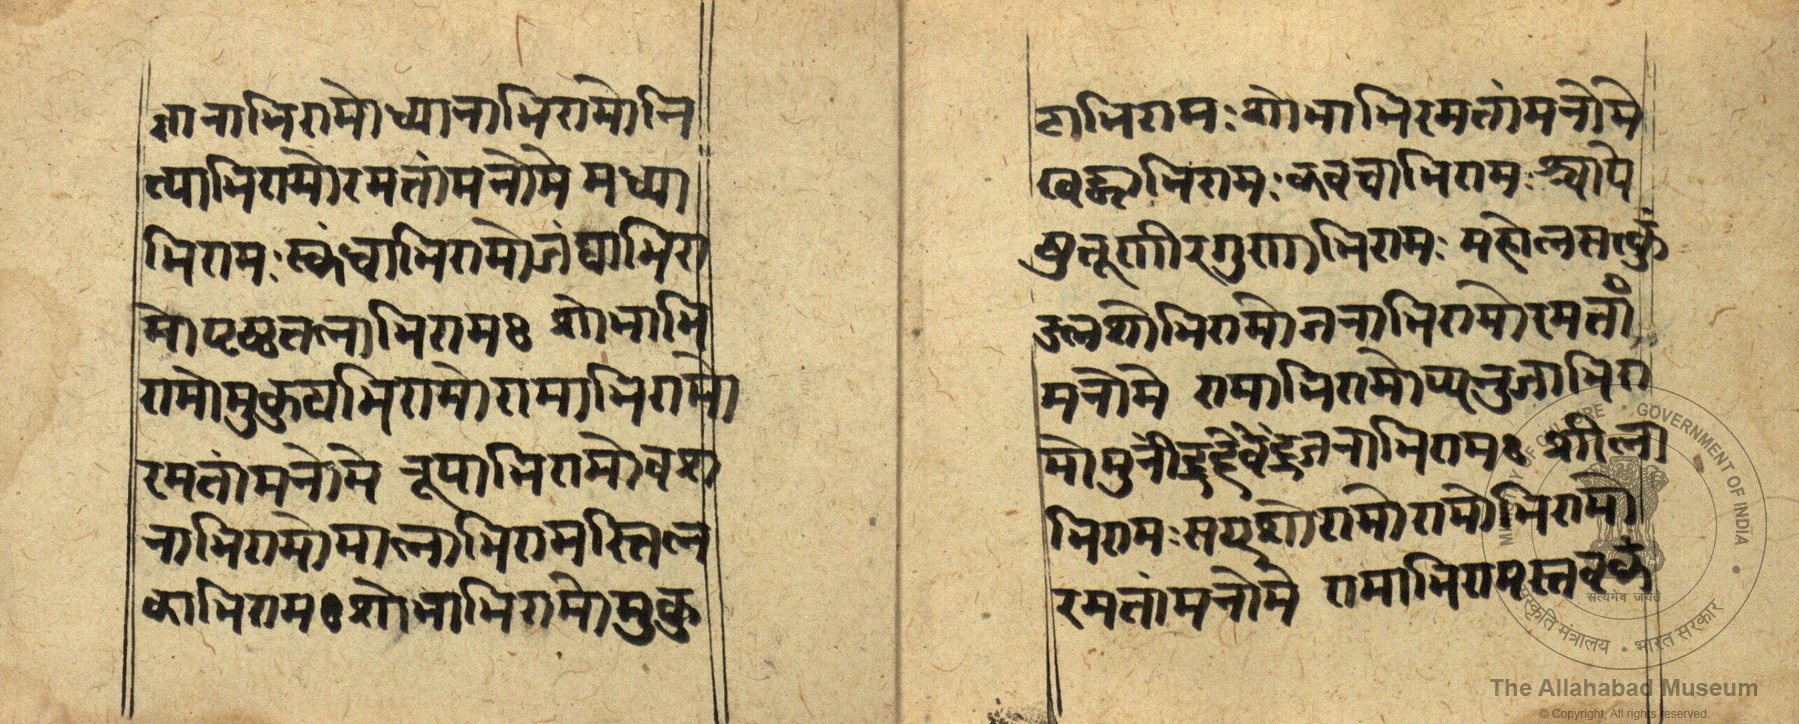 ज्ञानाभिरामोध्यानाभिरामोनि
त्याभिरामोरमतांमनोमे मध्या
भिरामः स्कंधाभिरामोजंघाभिरा
मोपृष्ठतलाभिरामः शोभाभि
रामोमुकुटाभिरामोरामाभिरामो
रमतांमनोमे रूपाभिरामोवश
नाभिरामोमालाभिरामस्तिल
काभिरामः शोभाभिरामोमुकु
टाभिरामः शोभाभिरमतांमनोमे
खड्गाभिरामः कवचाभिरामः
तूणीरगुणाभिरामः महोत्नसत्कुं
डलशोभिरामोजनाभिरामोरमतां
मनोमे रामाभिरामोप्यनुजाभिरा
मोमुनींद्रदेवेंद्रजनाभिरामः शीला
भिरामः सयशोरामोरामोभिरामो
रमतांमनोमे रामाभिरामस्तवकं
MINISTRY OF CULTURE • GOVERNMENT OF INDIA
सत्यमेव जयते
संस्कृति मंत्रालय • भारत सरकार
The Allahabad Museum
© Copyright, All rights reserved.